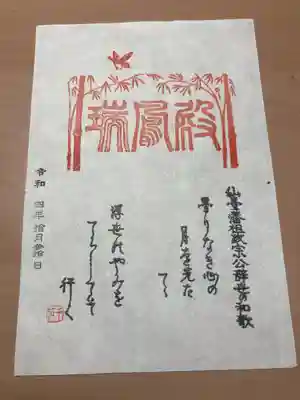 瑞鳳殿
仙臺藩祖政宗公辞世の和歌
曇りなき心の
月を先だてゝ
浮世のやみを
てらしてぞ
行く
令和 四年 拾月 拾日